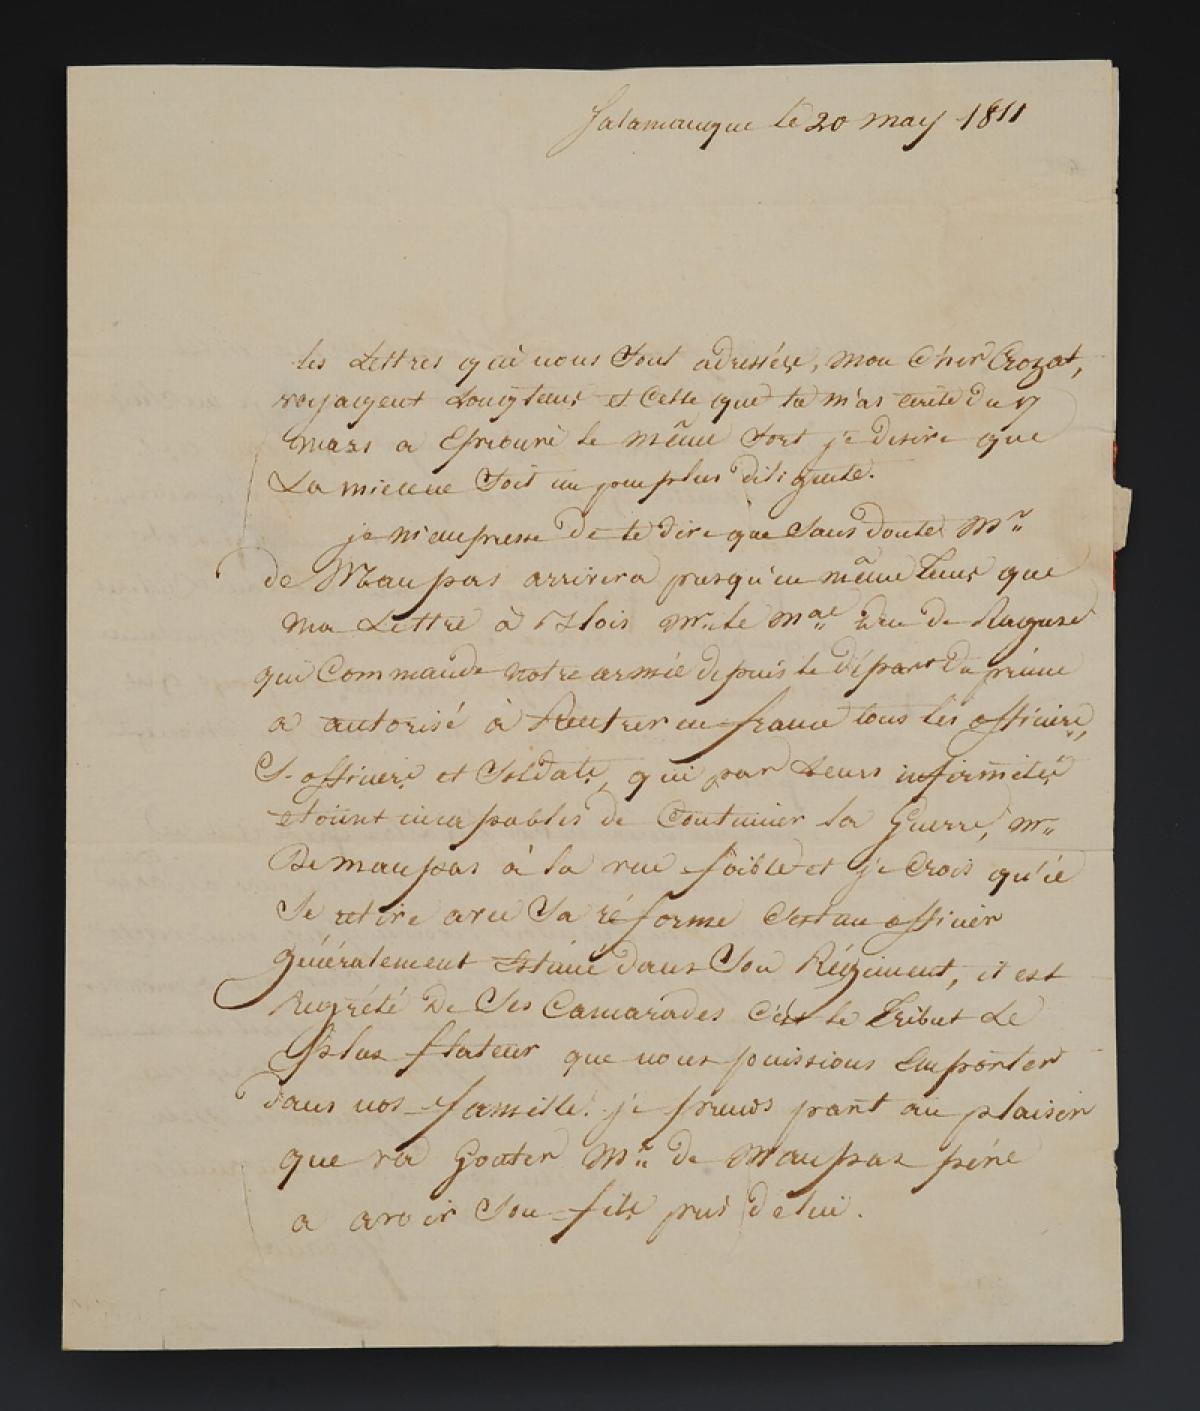 Salamanque le 20 may 1811
les Lettres qui nous sont adressées, mon cher Crozat,
voyagent Longtems et Celle que tu m'as écrite du 7
mars a Eprouvé le même sort je desire que
La mienne soit un peu plus diligente.
je m'empresse de te dire que sans doute Mr
de Maupas arrivera presqu'en même tems que
ma Lettre à Blois Mr. le Mal duc de Raguse
qui Commande notre armée depuis le départ du prince
a autorisé à Rentrer en france tous les officiers,
S. officiers et soldats, qui par leurs infirmités
etoient incapables de Continuer la Guerre, Mr
De maupas à la vue foible et je crois qu'il
se retire avec sa réforme C'est un officier
généralement Estimé dans son Régiment, il est
Regrété de ses Camarades c'est le Tribut Le
plus flateur que nous puissions Emporter
dans nos famille. je prends part au plaisir
que va Gouter Mr. de Maupas père
a avoir son fils près de lui.